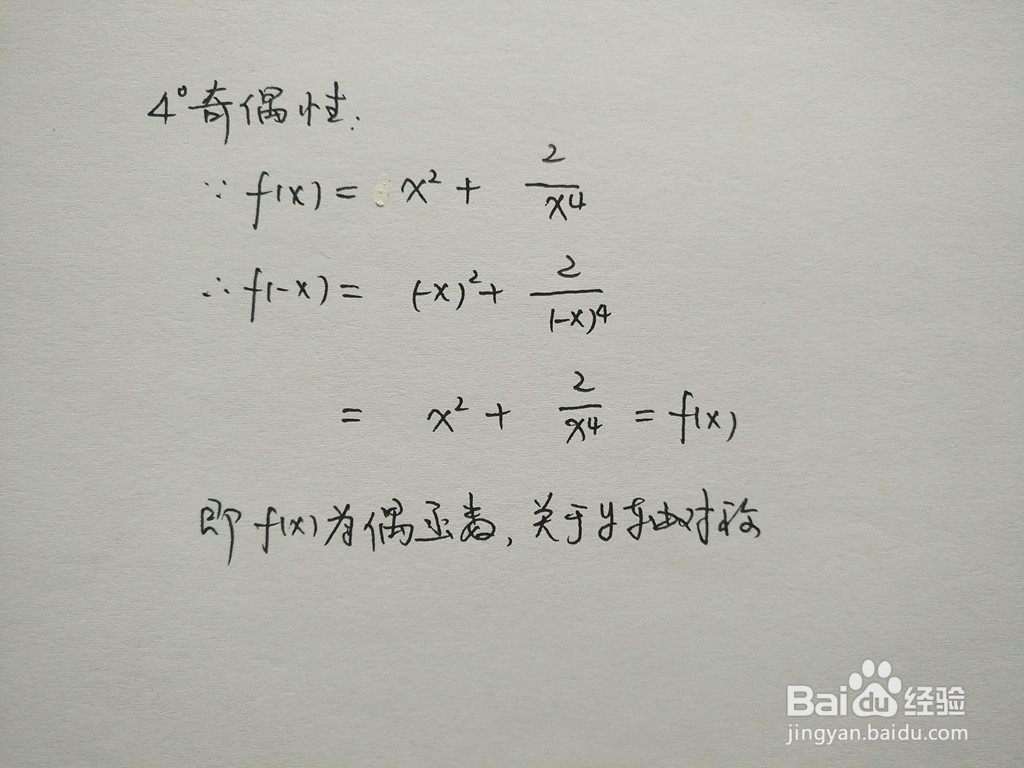 4°奇偶性.
∵ f(x) = x² + 2/x⁴
∴ f(-x) = (-x)² + 2/(-x)⁴
= x² + 2/x⁴ = f(x)
即f(x)为偶函数,关于y轴对称
Baidu经验
jingyan.baidu.com